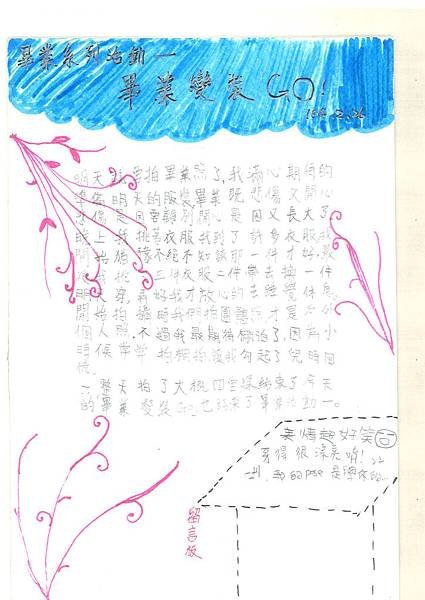 畢業系列活動一
畢業變裝GO!
明天就要拍畢業照了,我滿心期待的
準備明天的服裝畢業既悲傷又開心
悲傷是因要離別開心是因又長大了
晚上我挑著衣服找到了許多衣服我
開始猶豫不絕不知該那一件才好,最
後我挑三件衣服二件學士換一件
明天穿,再好我才放心的去睡覺休息
開始拍攝時我們拍團體照才是大分
個人照,不過我最期待獨拍了,因為小
時候常常拍獨拍讓我勾起了兒時回
憶。
一整天拍了大概四堂課結束了今天
的畢業變裝GO,也結束了畢業活動一。
表情超好笑
穿得很漂亮唷!
那個pose是學你的
留言板